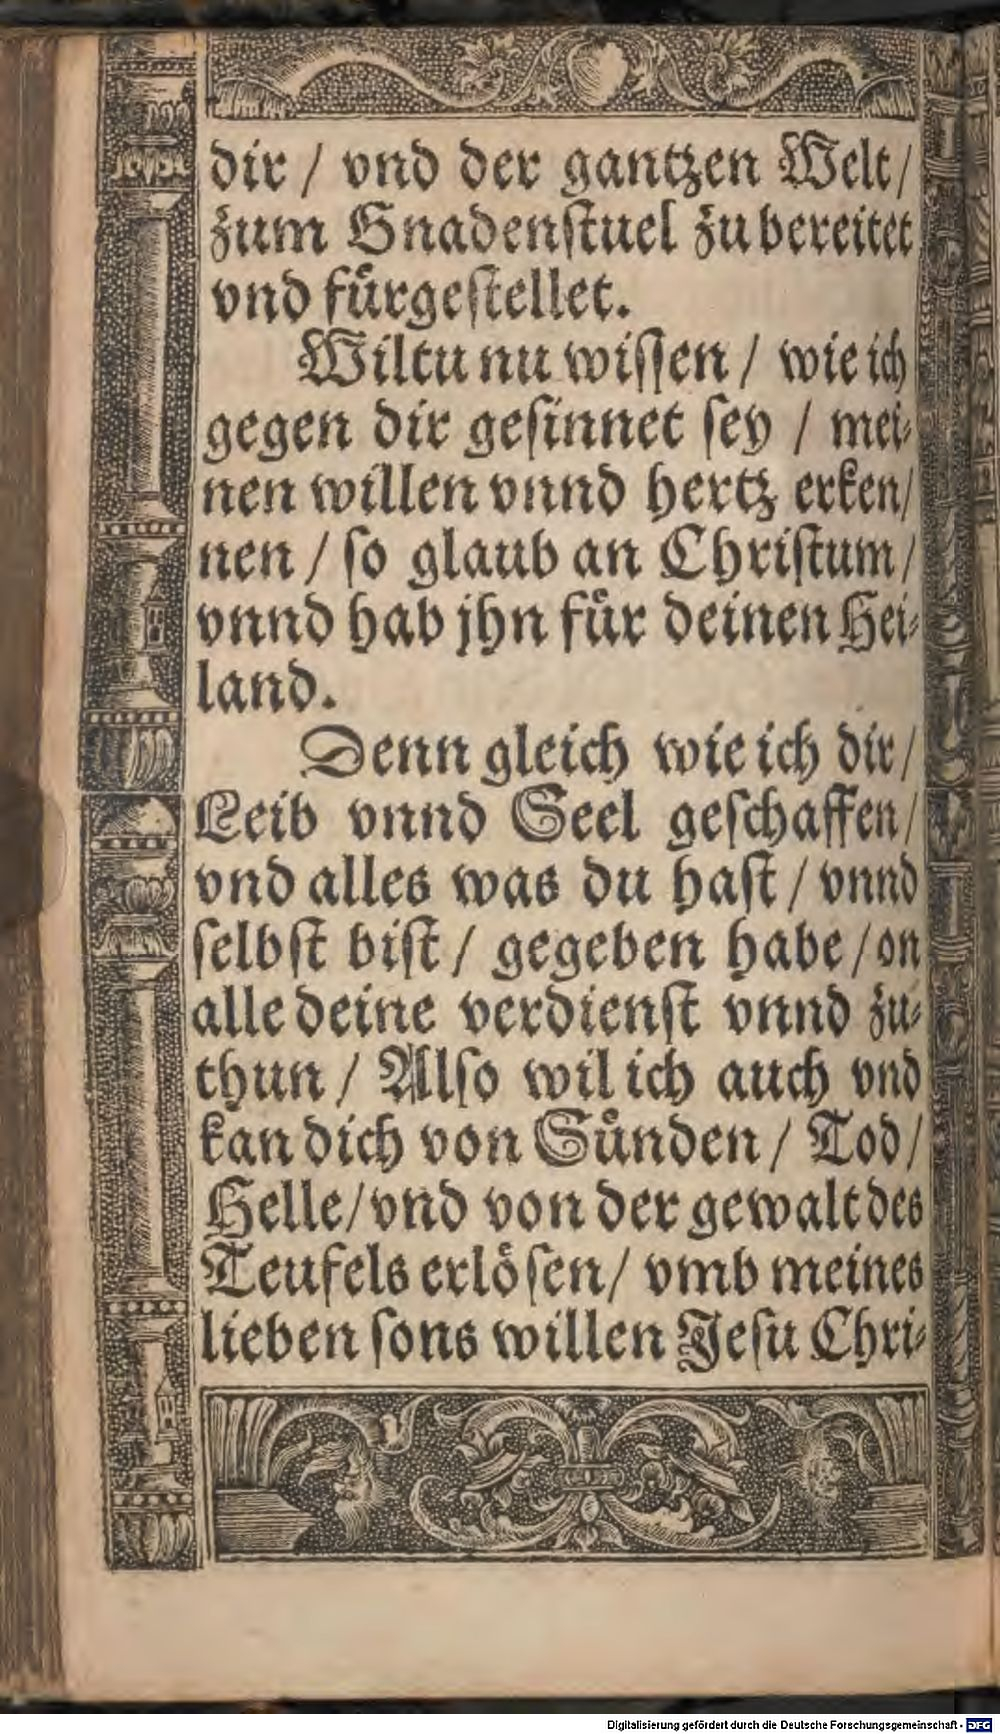 dir / vnd der gantzen Welt /
zum Gnadenſtuel zu bereitet
vnd fuͤrgeſtellet.
Wiltu nu wiſſen / wie ich
gegen dir geſinnet ſey / mei⸗
nen willen vnnd hertz erken/
nen / ſo glaub an Chriſtum /
vnnd hab jhn fuͤr deinen Hei⸗
land.
Denn gleich wie ich dir /
Leib vnnd Seel geſchaffen /
vnd alles was du haſt / vnnd
ſelbſt biſt / gegeben habe / on
alle deine verdienſt vnnd zu⸗
thun / Alſo wil ich auch vnd
kan dich von Suͤnden / Tod /
Helle / vnd von der gewalt des
Teufels erloͤſen / vmb meines
lieben ſons willen Jeſu Chri⸗
Digitalisierung gefördert durch die Deutsche Forschungsgemeinschaft - DFG